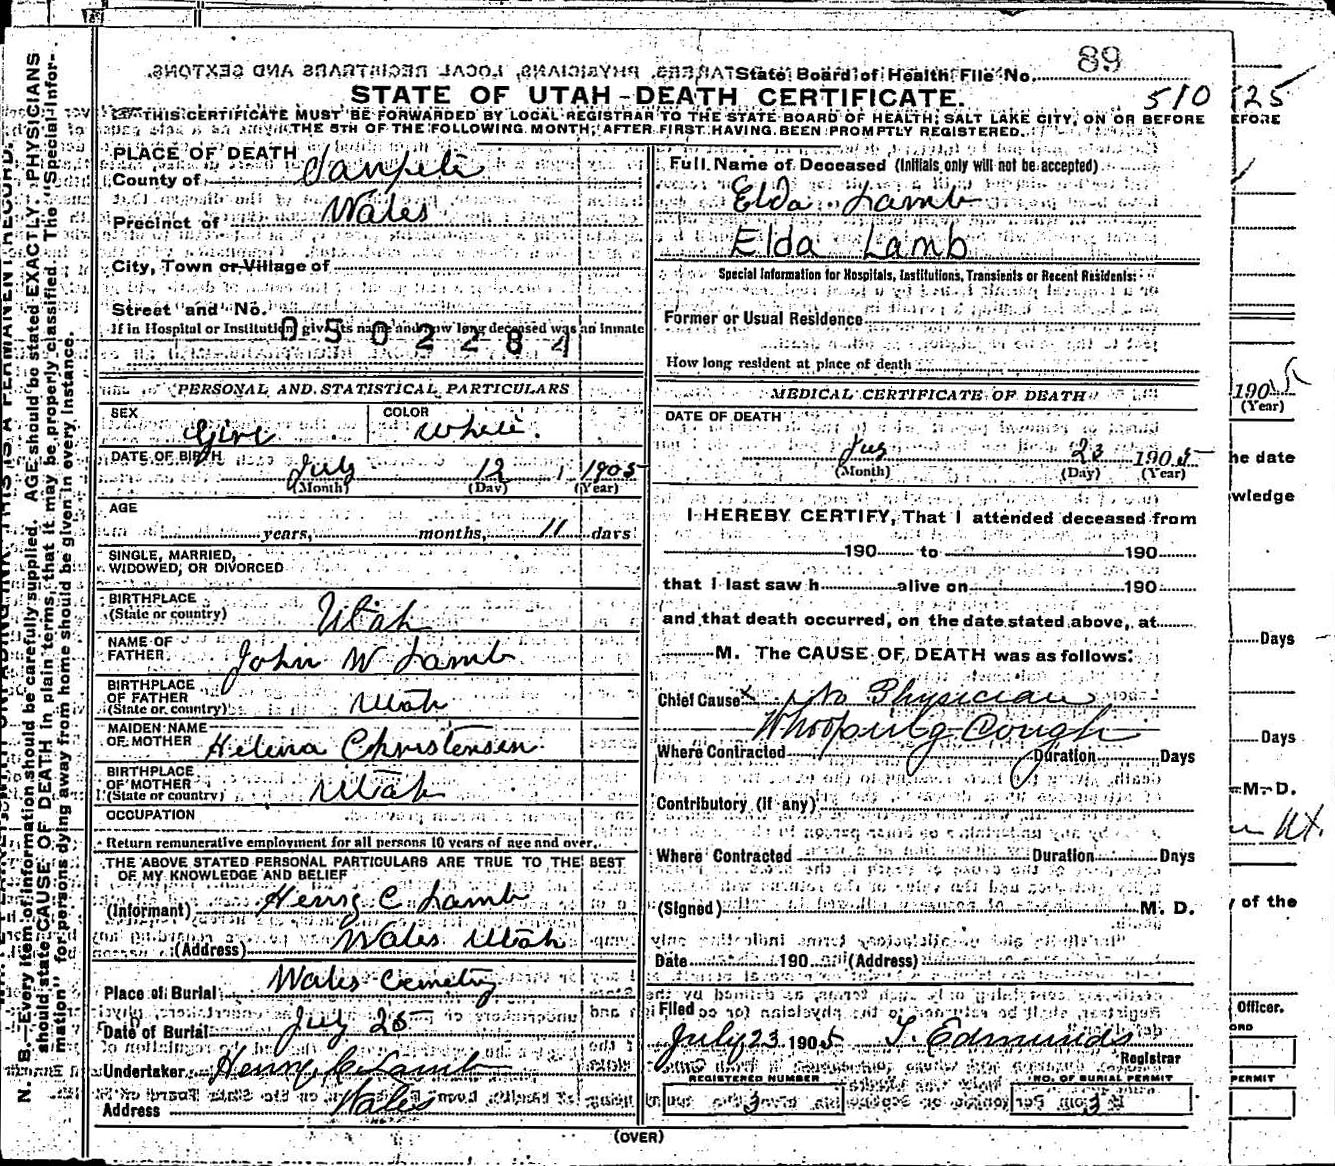 State Board of Health File No. 89
STATE OF UTAH-DEATH CERTIFICATE.
510
THIS CERTIFICATE MUST BE FORWARDED BY LOCAL REGISTRAR TO THE STATE BOARD OF HEALTH, SALT LAKE CITY, ON OR BEFORE
THE 5TH OF THE FOLLOWING MONTH, AFTER FIRST HAVING BEEN PROMPTLY REGISTERED.
PLACE OF DEATH
County of Sanpete
Precinct of Wales
City, Town or Village of
Street and No.
If in Hospital or Institution, give its name and how long deceased was an inmate
0502284
PERSONAL AND STATISTICAL PARTICULARS
SEX Girl
COLOR White.
DATE OF BIRTH
July 12 1905
(Month) (Day) (Year)
AGE
years, months, 11 days
SINGLE, MARRIED,
WIDOWED, OR DIVORCED
BIRTHPLACE
(State or country) Utah
NAME OF
FATHER John W Lamb
BIRTHPLACE
OF FATHER
(State or country) Utah
MAIDEN NAME
OF MOTHER Helena Christensen
BIRTHPLACE
OF MOTHER
(State or country) Utah
OCCUPATION
Return remunerative employment for all persons 10 years of age and over.
THE ABOVE STATED PERSONAL PARTICULARS ARE TRUE TO THE BEST
OF MY KNOWLEDGE AND BELIEF
(Informant) Henry C Lamb
(Address) Wales Utah
Place of Burial Wales Cemetry
Date of Burial July 25
Undertaker Henry C Lamb
Address Wales
Full Name of Deceased (Initials only will not be accepted)
Elda Lamb
Elda Lamb
Special Information for Hospitals, Institutions, Transients or Recent Residents:
Former or Usual Residence
How long resident at place of death
MEDICAL CERTIFICATE OF DEATH
DATE OF DEATH
July 23 1905
(Month) (Day) (Year)
I HEREBY CERTIFY, That I attended deceased from
190 to 190
that I last saw h alive on 190
and that death occurred, on the date stated above, at
M. The CAUSE OF DEATH was as follows:
Chief Cause No Physician
Whooping Cough
Where Contracted Duration Days
Contributory (if any)
Where Contracted Duration Days
(Signed) M. D.
Date 190 (Address)
Filed
July 23 1905 T. Edmunds
Registrar
REGISTERED NUMBER
3
NO. OF BURIAL PERMIT
3
(OVER)
N. B.—Every item of information should be carefully supplied. AGE should be stated EXACTLY. PHYSICIANS
should state CAUSE OF DEATH in plain terms, that it may be properly classified. The "Special Infor-
mation" for persons dying away from home should be given in every instance.
25
EFORE
1905
(Year)
he date
wledge
Days
Days
M. D.
Ut.
of the
Officer.
ORD
PERMIT